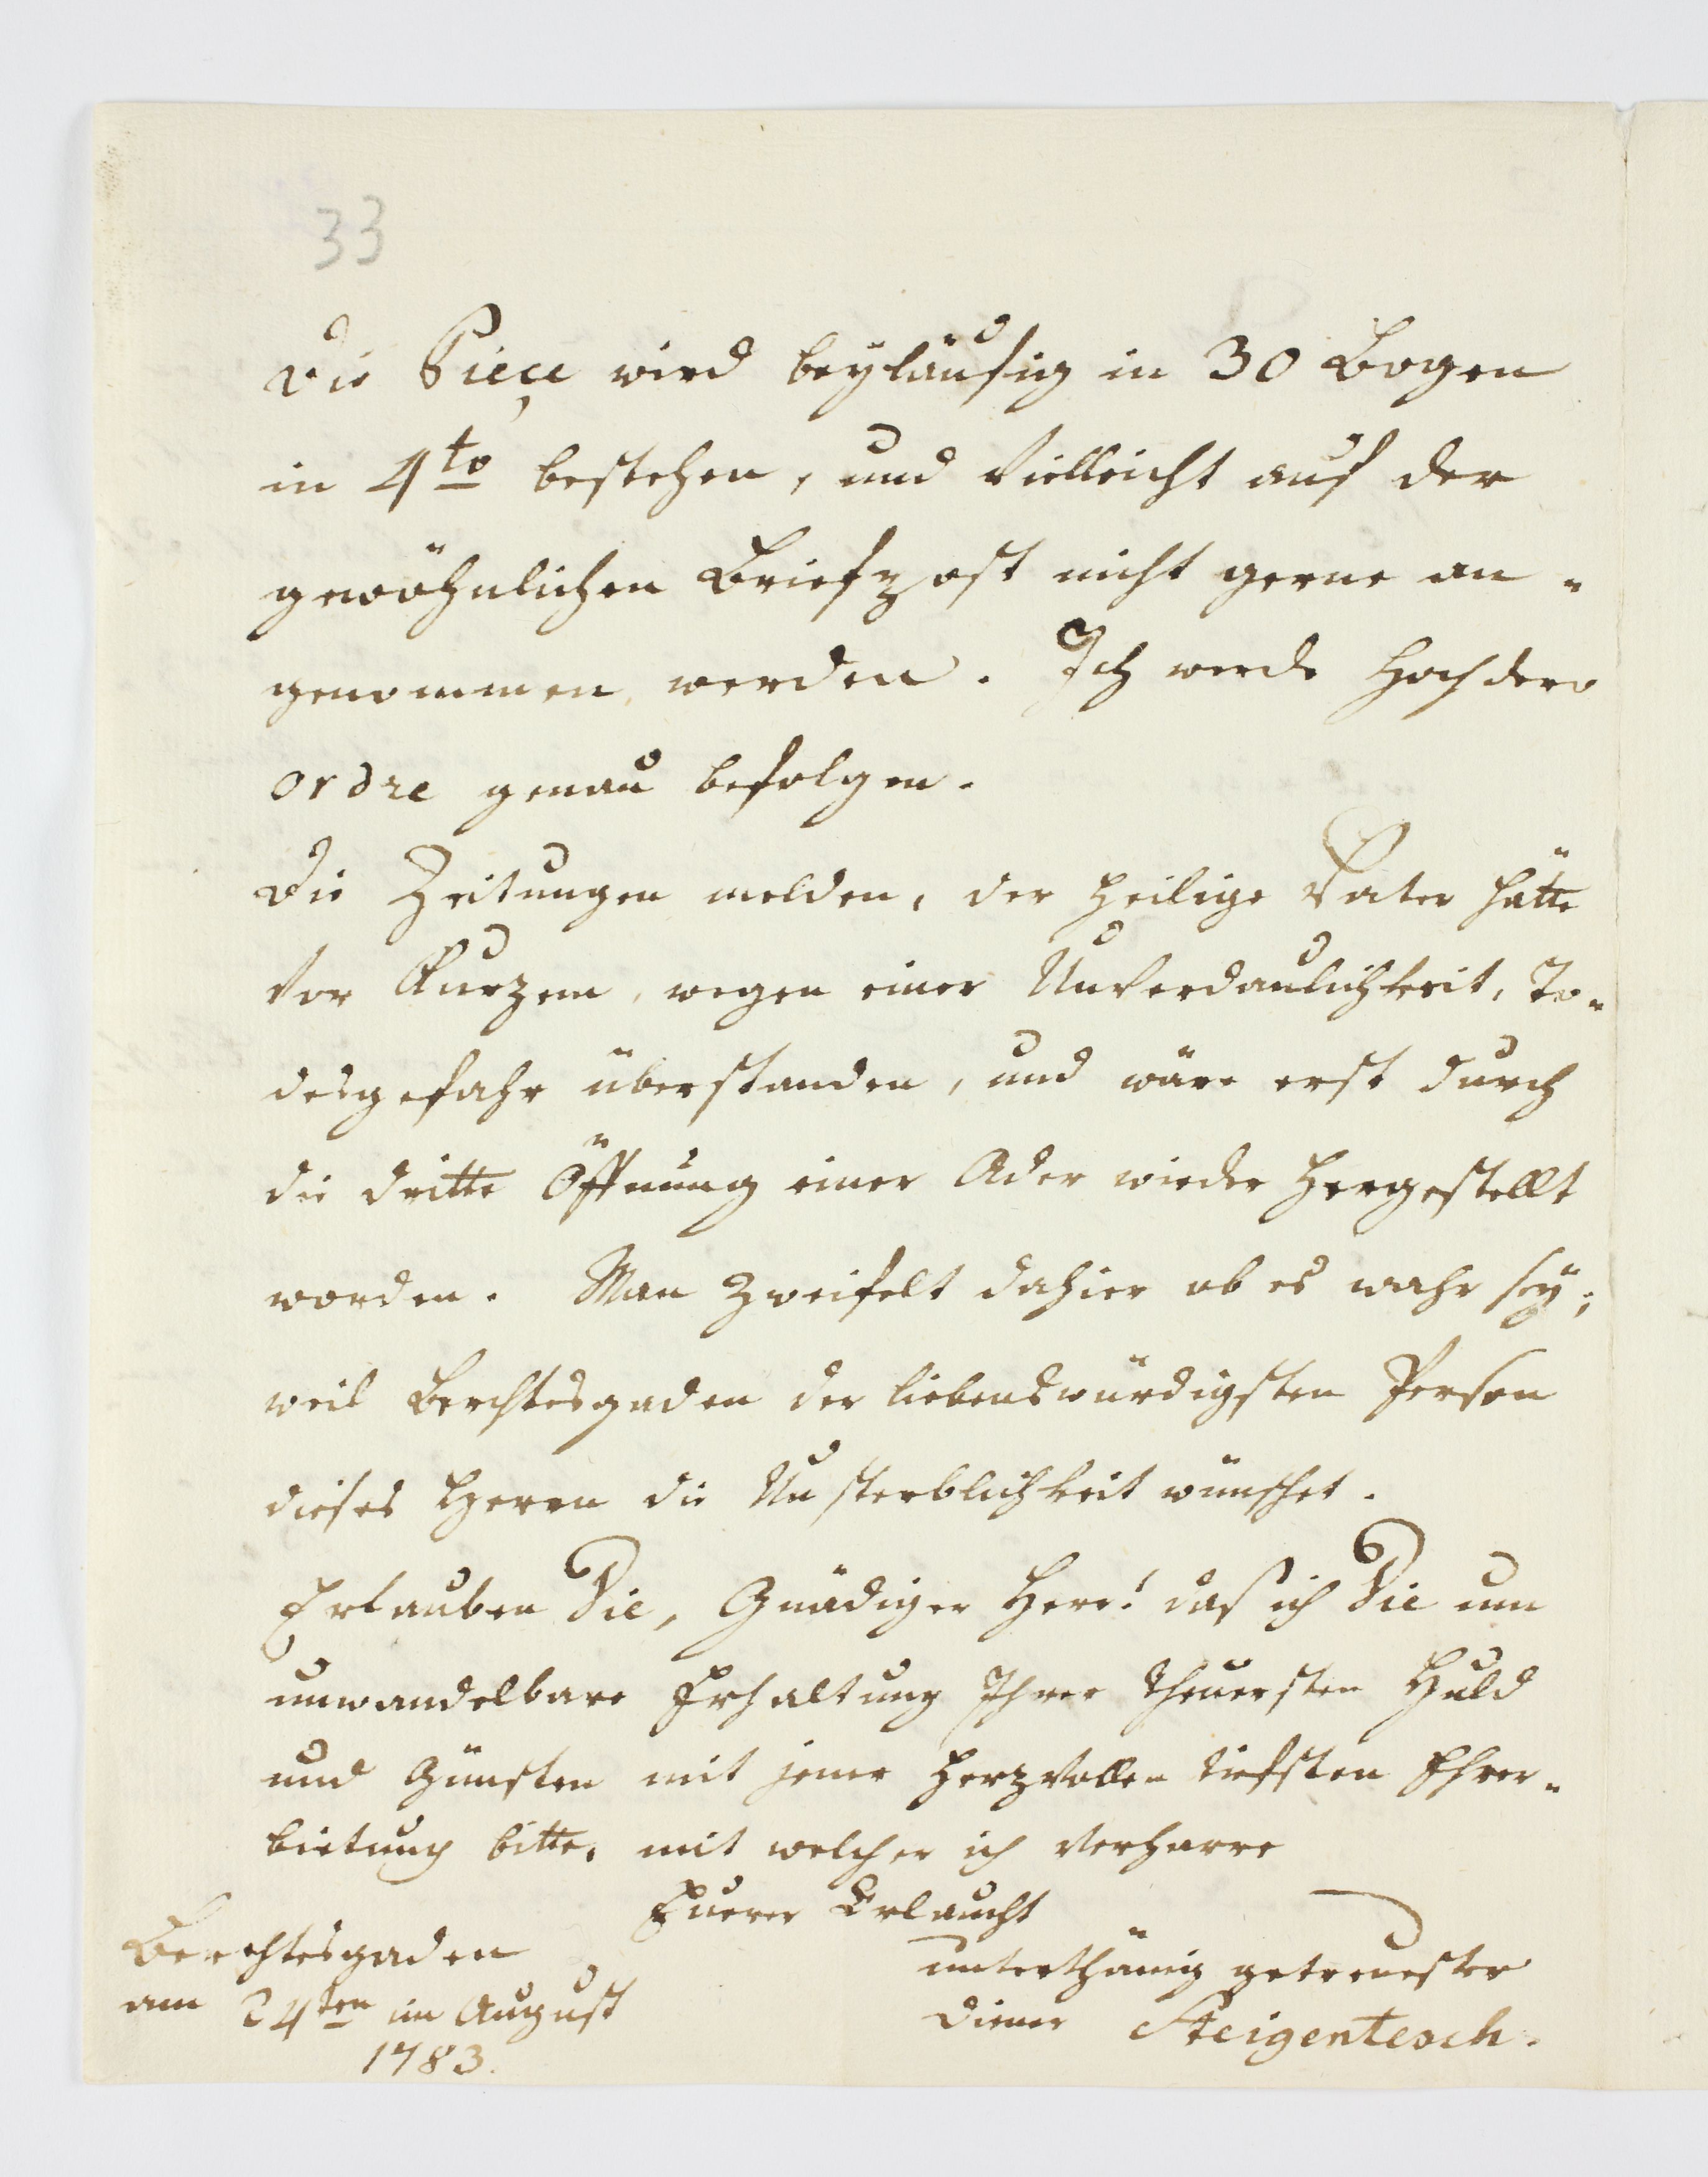 33
Die Pieçe wird beyläufig in 30 Bogen
in 4to bestehen, und Vielleicht auf der
gewöhnlichen Briefpost nicht gerne an-
genommen werden. Ich werde Hochdero
ordre genau befolgen.
Die Zeitungen melden, der heilige Vater hätte
Vor Kurzem, wegen einer UnVerdaulichkeit, To-
desgefahr überstanden, und wäre erst durch
die dritte Öffnung einer Ader wieder hergestellt
worden. Man Zweifelt dahier ob es wahr sey;
weil Berchtesgaden der liebenswürdigsten Person
dieses Herrn die Unsterblichkeit wünschet.
Erlauben Sie, Gnädiger Herr! daß ich Sie um
unwandelbare Erhaltung Ihrer theuersten Huld
und Günsten mit jener herzVollen tiefsten Ehrer-
bietung bitte, mit welcher ich Verharre
Euerer Erlaucht
Berchtesgaden
am 24ten im August
1783.
unterthänig getreuester
Diener Steigentesch.